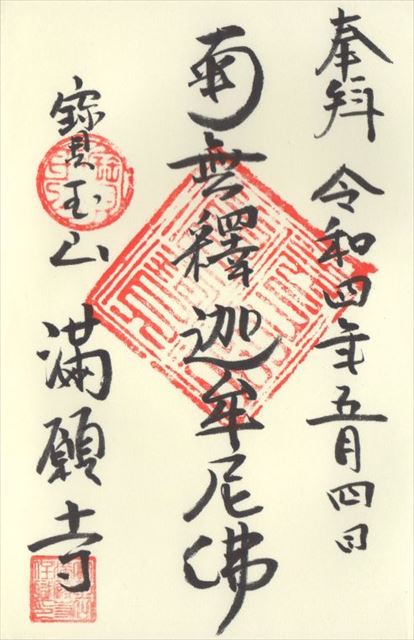 奉拜 令和四年五月四日
南無釋迦牟尼佛
寳玉山 滿願寺